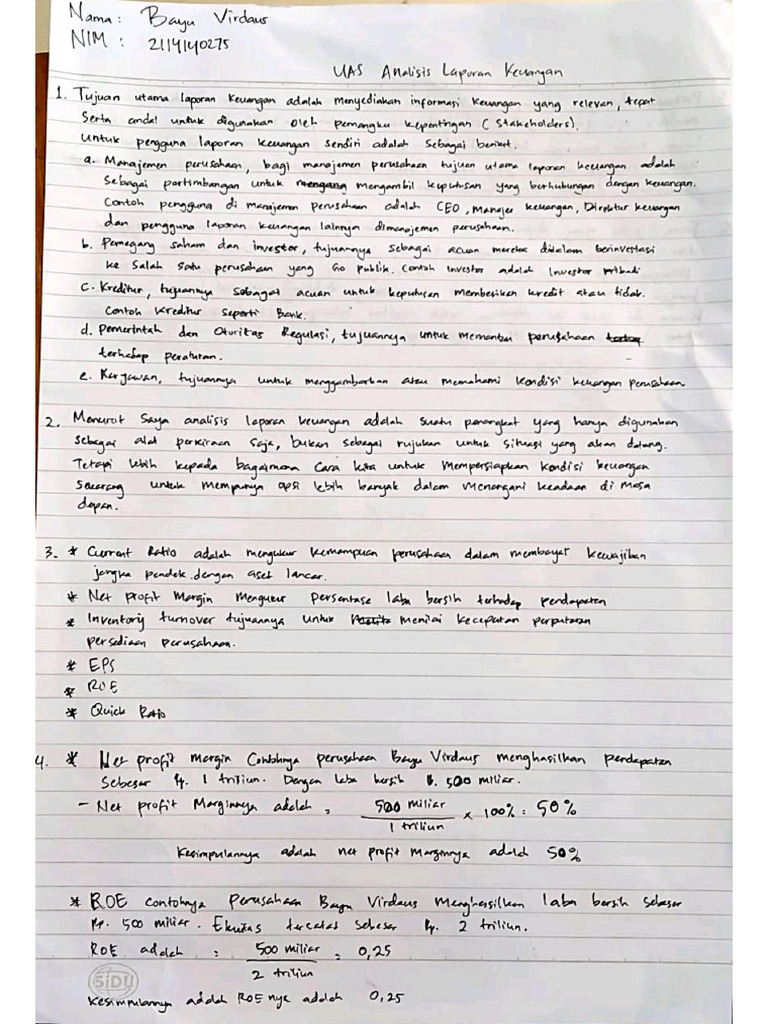 Nama : Bayu Virdaus
NIM : 2114140275
UAS Analisis Laporan Keuangan
1. Tujuan utama laporan keuangan adalah menyediakan informasi keuangan yang relevan, tepat
Serta andal untuk digunakan oleh pemangku kepentingan (Stakeholders).
Untuk pengguna laporan keuangan sendiri adalah sebagai berikut.
a. Manajemen perusahaan, bagi manajemen perusahaan tujuan utama laporan keuangan adalah
Sebagai pertimbangan untuk mengambil keputusan yang berhubungan dengan keuangan.
Contoh pengguna di manajemen perusahaan adalah CEO, Manajer keuangan, Direktur keuangan
dan pengguna laporan keuangan lainnya dimanajemen perusahaan.
b. Pemegang saham dan investor, tujuannya sebagai acuan mereka didalam berinvestasi
ke Salah Satu perusahaan yang Go publik. Contoh Investor adalah Investor Pribadi
C. Kreditur, tujuannya sebagai acuan untuk keputusan memberikan kredit atau tidak.
Contoh kreditur seperti Bank.
d. Pemerintah dan Otoritas Regulasi, tujuannya untuk memantau perusahaan
terhadap peraturan.
e. Karyawan, tujuannya untuk menggambarkan atau memahami kondisi keuangan perusahaan.
2. Menurut Saya analisis laporan keuangan adalah suatu perangkat yang hanya digunakan
sebagai alat perkiraan saja, bukan sebagai rujukan untuk situasi yang akan datang.
Tetapi lebih kepada bagaimana cara kita untuk mempersiapkan kondisi keuangan
Sekarang untuk mempunya opsi lebih banyak dalam menangani keadaan di masa
depan.
3. * Current Ratio adalah mengukur kemampuan perusahaan dalam membayar kewajiban
jangka pendek dengan aset lancar.
* Net profit Margin mengukur persentase laba bersih terhadap pendapatan
* Inventory turnover tujuannya untuk menilai kecepatan perputaran
persediaan perusahaan.
* EPS
* ROE
* Quick Ratio
4. * Net profit margin Contohnya perusahaan Bayu Virdaus menghasilkan pendapatan
Sebesar Rp. 1 triliun. Dengan laba bersih Rp. 500 miliar.
- Net profit Marginnya adalah = 500 miliar / 1 triliun x 100% = 50%
Kesimpulannya adalah net profit marginnya adalah 50%
* ROE contohnya perusahaan Bayu Virdaus menghasilkan laba bersih sebesar
Rp. 500 miliar. Ekuitas tercatat sebesar Rp. 2 triliun.
ROE adalah = 500 miliar / 2 triliun = 0,25
SiDU
Kesimpulannya adalah ROE nya adalah 0,25